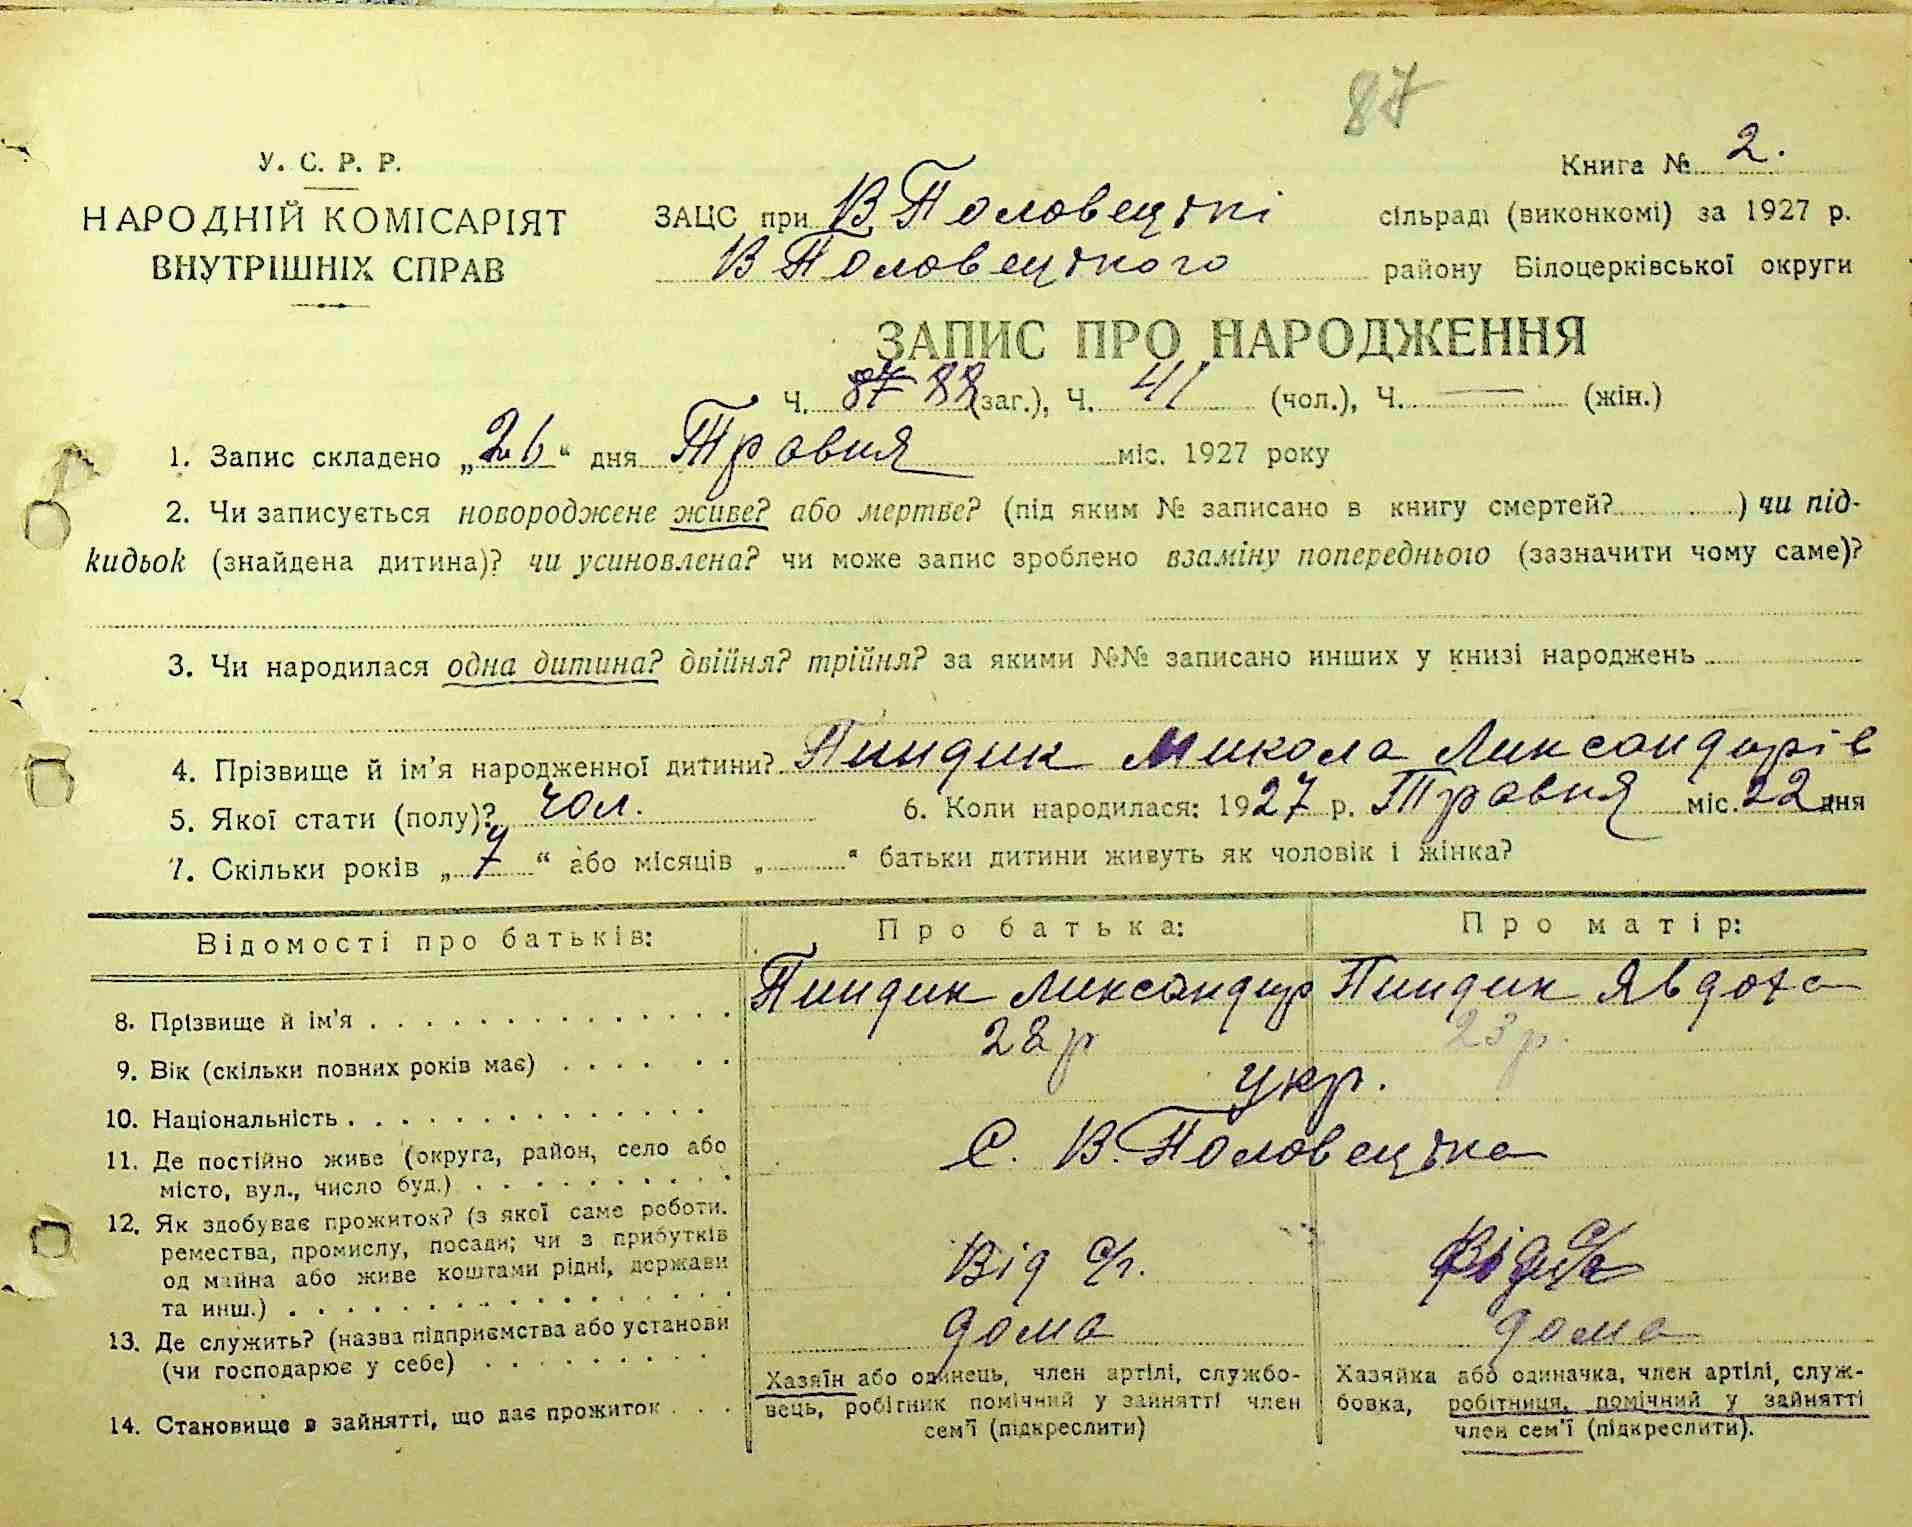 87
У. С. Р. Р.
НАРОДНІЙ КОМІСАРІЯТ
ВНУТРІШНІХ СПРАВ
Книга № 2.
ЗАЦС при В Половецькі сільраді (виконкомі) за 1927 р.
В Половецького району Білоцерківської округи
ЗАПИС ПРО НАРОДЖЕННЯ
Ч. 87 88 (заг.), Ч. 41 (чол.), Ч. — (жін.)
1. Запис складено „26“ дня Травня міс. 1927 року
2. Чи записується новороджене живе? або мертве? (під яким № записано в книгу смертей? ) чи під-
кидьок (знайдена дитина)? чи усиновлена? чи може запис зроблено взаміну попереднього (зазначити чому саме)?
3. Чи народилася одна дитина? двійня? трійня? за якими №№ записано инших у книзі народжень
4. Прізвище й ім'я народженної дитини? Пиндик Микола Ликсандрів
5. Якої стати (полу)? чол. 6. Коли народилася: 1927 р. Травня міс. 22 дня
7. Скільки років „7“ або місяців „ “ батьки дитини живуть як чоловік і жінка?
Відомості про батьків: Про батька: Про матір:
8. Прізвище й ім'я Пиндик Ликсандр Пиндик Явдоха
9. Вік (скільки повних років має) 28 р 23 р.
10. Національність укр.
11. Де постійно живе (округа, район, село або
місто, вул., число буд.) С. В. Половецьке
12. Як здобуває прожиток? (з якої саме роботи,
ремества, промислу, посади; чи з прибутків
од майна або живе коштами рідні, держави
та инш.) Від с/г. Від с/г
13. Де служить? (назва підприємства або установи
(чи господарює у себе) дома дома
14. Становище в зайнятті, що дає прожиток
Хазяїн або одинець, член артілі, службо-
вець, робітник помічний у зайнятті член
сем'ї (підкреслити)
Хазяйка або одиначка, член артілі, служ-
бовка, робітниця, помічний у зайнятті
член сем'ї (підкреслити).